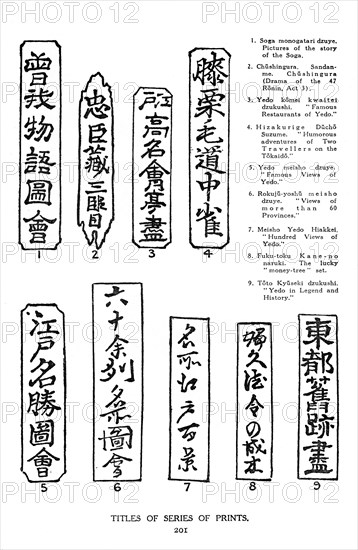 1. Soga monogatari dzuye.
Pictures of the story
of the Soga.
2. Chūshingura. Sandan-
me. Chūshingura
(Drama of the 47
Rōnin, Act 3).
3. Yedo kōmei kwaitei
dzukushi. "Famous
Restaurants of Yedo."
4. Hizakurige Dūchō
Suzume. "Humorous
adventures of Two
Travellers on the
Tōkaidō."
5. Yedo meisho dzuye.
"Famous Views of
Yedo."
6. Rokujū-yoshū meisho
dzuye. "Views of
more than 60
Provinces."
7. Meisho Yedo Hiakkei.
"Hundred Views of
Yedo."
8. Fuku-toku Kane-no
naruki. The lucky
"money-tree" set.
9. Tōto Kyūseki dzukushi.
"Yedo in Legend and
History."
曽我物語圖會
1
忠臣藏三段目
2
江戸高名會亭盡
3
膝栗毛道中雀
4
江戸名勝圖會
5
六十余州名所圖會
6
名所江戸百景
7
福久徳金の成木
8
東都舊跡盡
9
TITLES OF SERIES OF PRINTS.
201
PHOTO 12